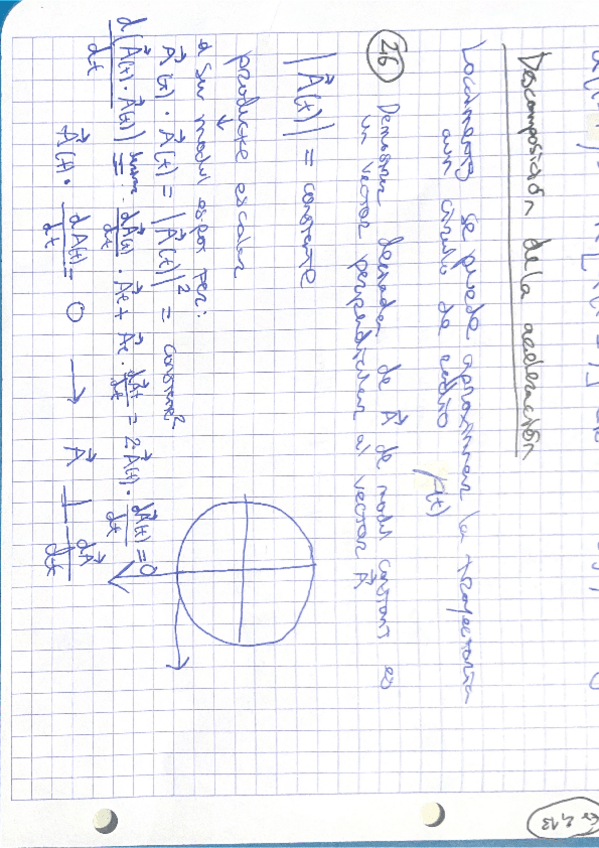 Descomposición de la aceleración
Localmente se puede aproximar la trayectoria
a un círculo de centro
r(t)
26 Demostrar derivada de A⃗ de modul constant es
un vector perpendicular al vector A⃗
|A⃗(t)| = constante
producte escalar
↓
d Seu modul espot fer:
A⃗(t) · A⃗(t) = |A⃗(t)|² = constante²
d(A⃗(t) · A⃗(t))/dt = dA⃗(t)/dt · A⃗t + A⃗t · dA⃗t/dt = 2A⃗(t) · dA⃗(t)/dt = 0
A⃗(t) · dA⃗(t)/dt = 0 → A⃗ ⊥ dA⃗/dt
2,13